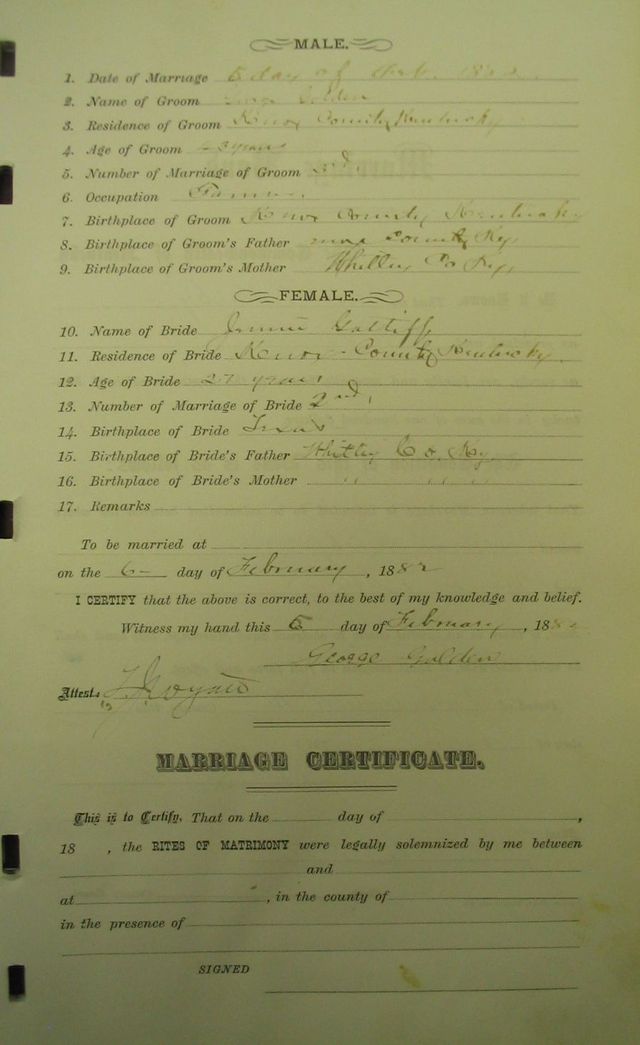 MALE.
1. Date of Marriage 5 day of Feb. 1882
2. Name of Groom Golden
3. Residence of Groom Knox County Kentucky
4. Age of Groom years
5. Number of Marriage of Groom
6. Occupation Farmer.
7. Birthplace of Groom Knox County Kentucky
8. Birthplace of Groom's Father Knox County Ky,
9. Birthplace of Groom's Mother Whitley Co Ky,
FEMALE.
10. Name of Bride
11. Residence of Bride Knox - County Kentucky.
12. Age of Bride 27 years,
13. Number of Marriage of Bride 2nd,
14. Birthplace of Bride
15. Birthplace of Bride's Father Whitley Co. Ky.
16. Birthplace of Bride's Mother " " "
17. Remarks
To be married at
on the 6 day of February, 1882
I CERTIFY that the above is correct, to the best of my knowledge and belief.
Witness my hand this 5 day of February, 188
George Golden
Attest:
MARRIAGE CERTIFICATE.
This is to Certify, That on the day of ,
18 , the RITES OF MATRIMONY were legally solemnized by me between
and
at , in the county of
in the presence of
SIGNED